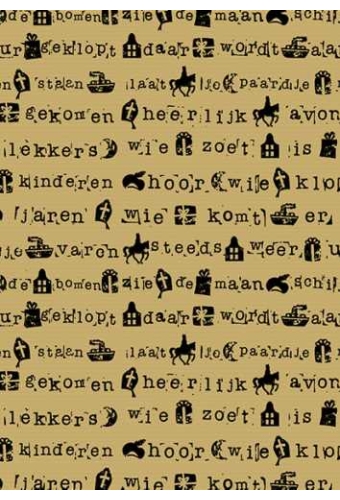 de bomen zie de maan schij
ur geklopt daar wordt aa
en staan laat je paardje
gekomen heerlijk avon
lekkers wie zoet is
kinderen hoor wie klop
jaren wie komt er
je varen steeds weer u
de bomen zie de maan schij
ur geklopt daar wordt aa
en staan laat je paardje
gekomen heerlijk avon
lekkers wie zoet is
kinderen hoor wie klo
jaren wie komt er